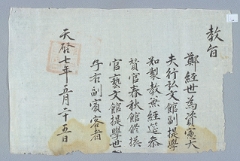 教旨
鄭經世為資憲大
夫行弘文館副提學
知製教兼經筵參
贊官春秋館修撰
官藝文館提學世
子右副賓客者
天啓七年五月二十五日